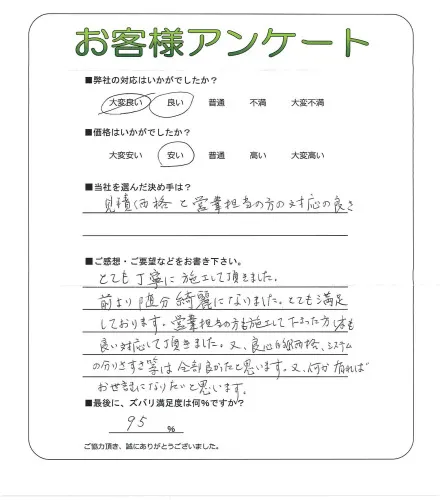 お客様アンケート
■弊社の対応はいかがでしたか?
大変良い 良い 普通 不満 大変不満
■価格はいかがでしたか?
大変安い 安い 普通 高い 大変高い
■当社を選んだ決め手は?
見積価格と営業担当の方の対応の良さ
■ご感想・ご要望などをお書き下さい。
とても丁寧に施工して頂きました。
前より随分綺麗になりました。とても満足
しております。営業担当の方も施工して下さった方も
良い対応して頂きました。又、良心的価格、システム
の分りやすさ等は全部良かったと思います。又、何か有れば
お世話になりたいと思います。
■最後に、ズバリ満足度は何%ですか?
95 %
ご協力頂き、誠にありがとうございました。